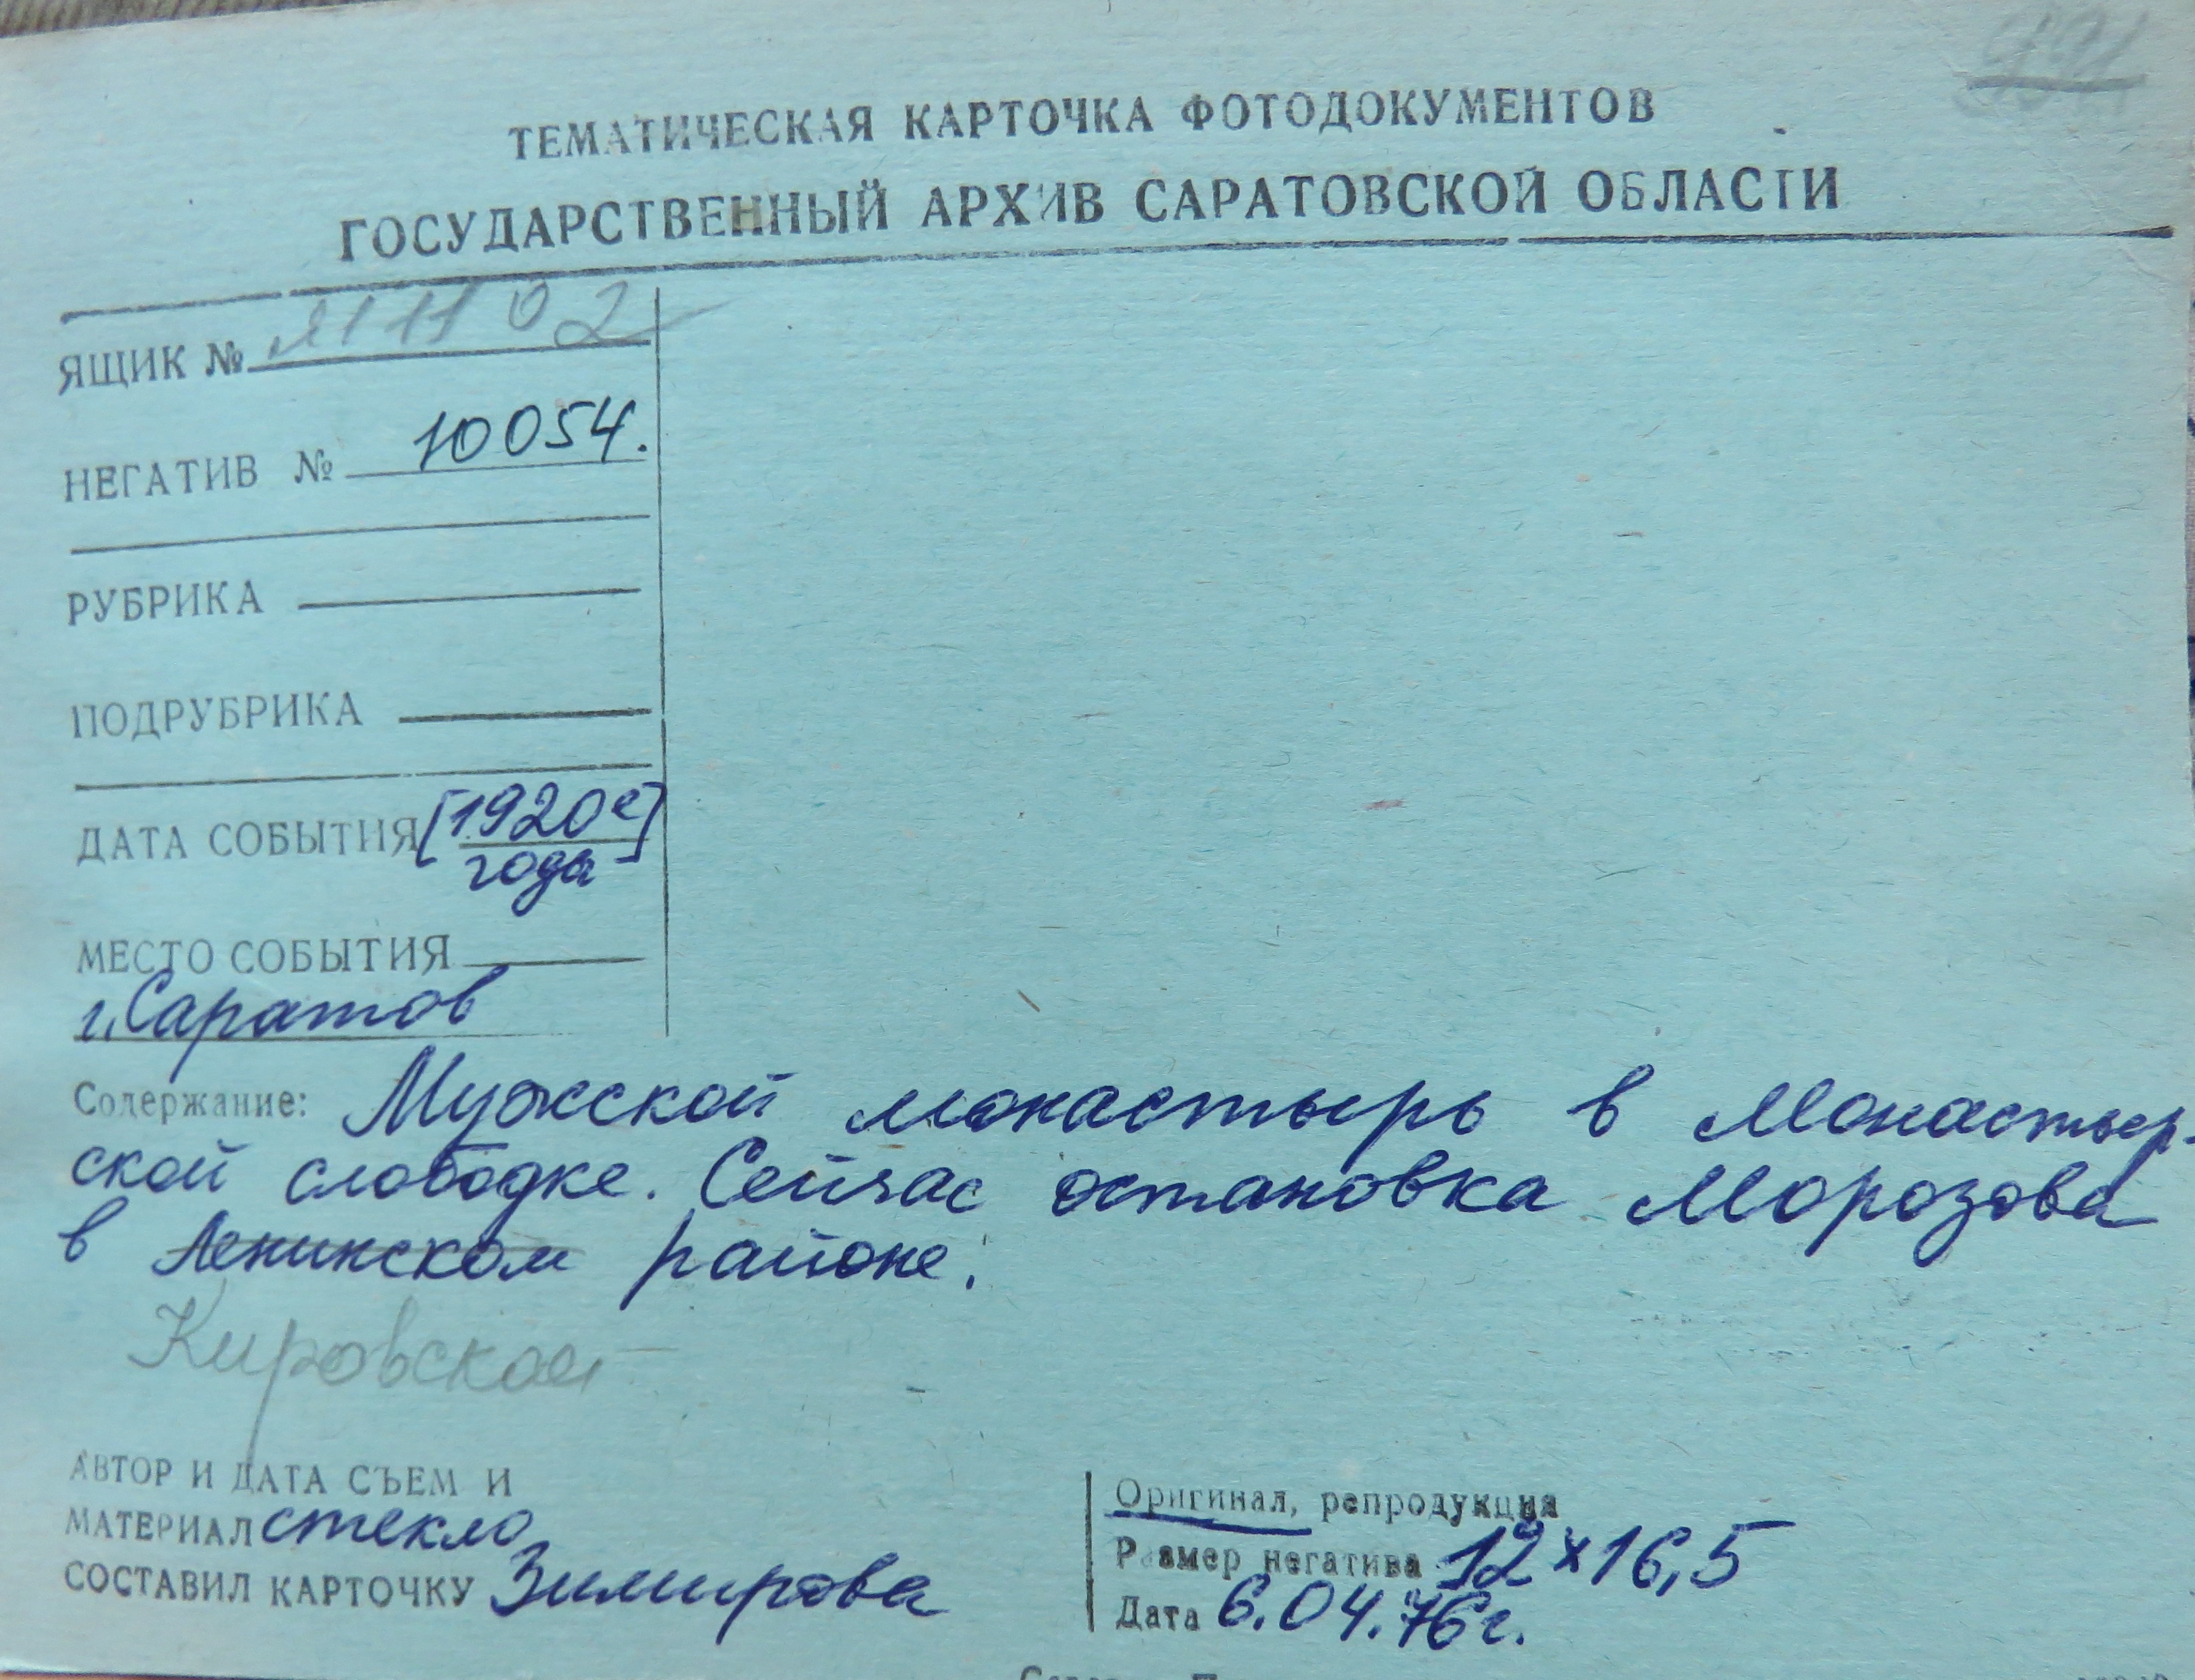 ТЕМАТИЧЕСКАЯ КАРТОЧКА ФОТОДОКУМЕНТОВ
ГОСУДАРСТВЕННЫЙ АРХИВ САРАТОВСКОЙ ОБЛАСТИ
ЯЩИК №
НЕГАТИВ № 10054.
РУБРИКА
ПОДРУБРИКА
ДАТА СОБЫТИЯ [1920е
года]
МЕСТО СОБЫТИЯ
г. Саратов
Содержание: Мужской монастырь в Монастыр-
ской слободке. Сейчас остановка Морозова
в Ленинском районе.
Кировском
АВТОР И ДАТА СЪЕМ И
МАТЕРИАЛ стекло
СОСТАВИЛ КАРТОЧКУ Зимирова
Оригинал, репродукция
Размер негатива 12 x 16,5
Дата 6.04.76 г.